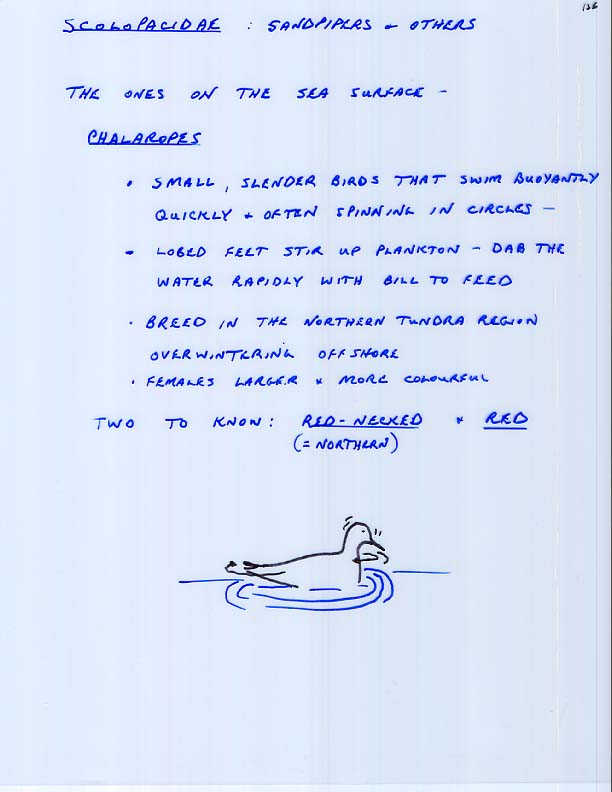 136
SCOLOPACIDAE : SANDPIPERS & OTHERS
THE ONES ON THE SEA SURFACE -
PHALAROPES
• SMALL, SLENDER BIRDS THAT SWIM BUOYANTLY
QUICKLY & OFTEN SPINNING IN CIRCLES -
- LOBED FEET STIR UP PLANKTON - DAB THE
WATER RAPIDLY WITH BILL TO FEED
• BREED IN THE NORTHERN TUNDRA REGION
OVERWINTERING OFFSHORE
• FEMALES LARGER & MORE COLOURFUL
TWO TO KNOW: RED-NECKED & RED
(= NORTHERN)